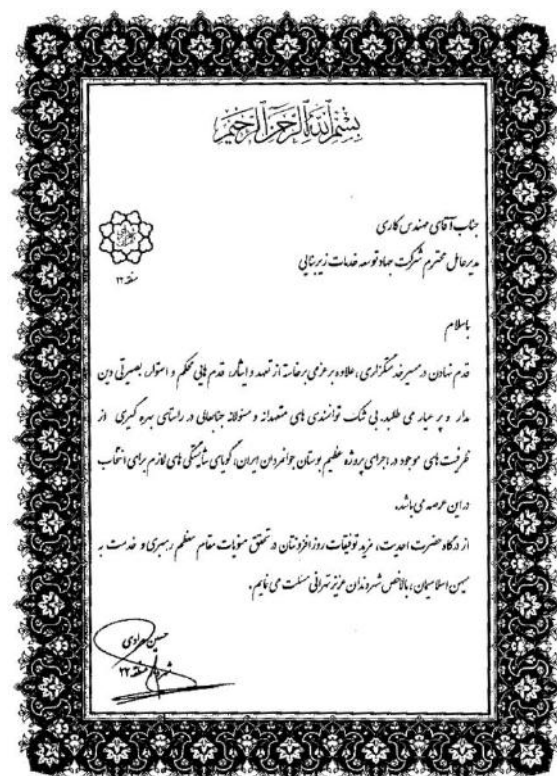 بسم الله الرحمن الرحیم
جناب آقای مهندس کاری
مدیرعامل محترم شرکت جهاد توسعه خدمات زیربنایی
منطقه ۲۲
باسلام
قدم نهادن در مسیر خدمتگزاری، علاوه بر عزمی برخاسته از تعهد و ایثار، قدم هایی محکم و استوار، بصیرتی دین
مدار و پر عیار می طلبد. بی شک توانمندی های متعهدانه و مسئولانه جنابعالی در راستای بهره گیری از
ظرفیت های موجود در اجرای پروژه عظیم بوستان جوانمردان ایران، گویای شایستگی های لازم برای انتخاب
در این عرصه می باشد.
از درگاه حضرت احدیت، مزید توفیقات روز افزونتان در تحقق منویات مقام معظم رهبری و خدمت به
میهن اسلامیمان، بالاخص شهروندان عزیز تهرانی مسئلت می نمایم.
حسین
شهردار منطقه ۲۲